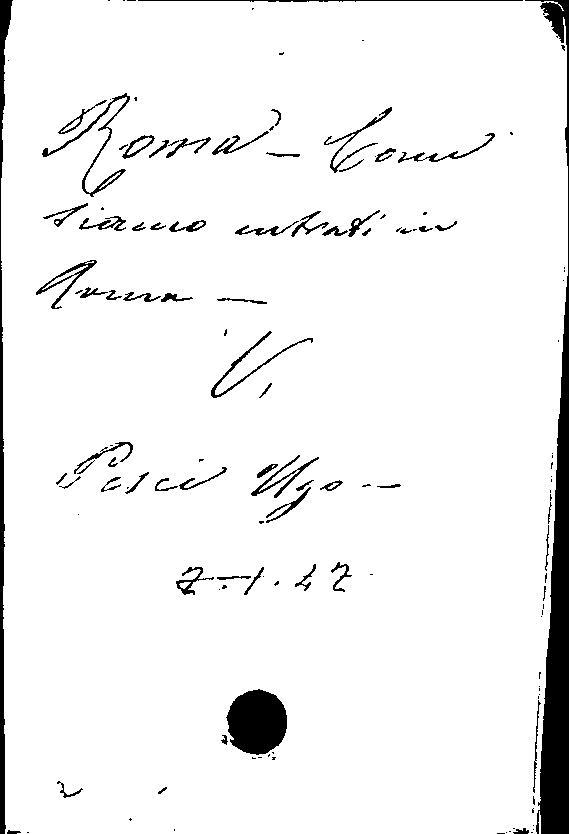 Roma - Come
siamo entrati in
Roma -
V.
Pesci Ugo -
7.1.47